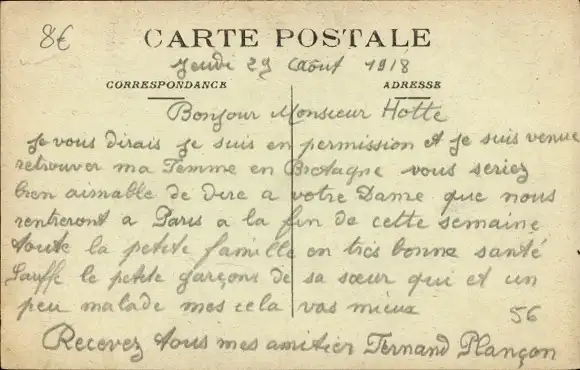 8€
CARTE POSTALE
Jeudi 29 Août 1918
CORRESPONDANCE
ADRESSE
Bonjour Monsieur Hotte
Je vous dirais je suis en permission et je suis venue
retrouver ma Femme en Bretagne vous seriez
bien aimable de dire a votre Dame que nous
rentreront a Paris a la fin de cette semaine
toute la petite famille en très bonne santé
Sauffe le petite garçons de sa sœur qui et un
peu malade mes cela vas mieux
56
Recevez tous mes amitier Fernand Plançon